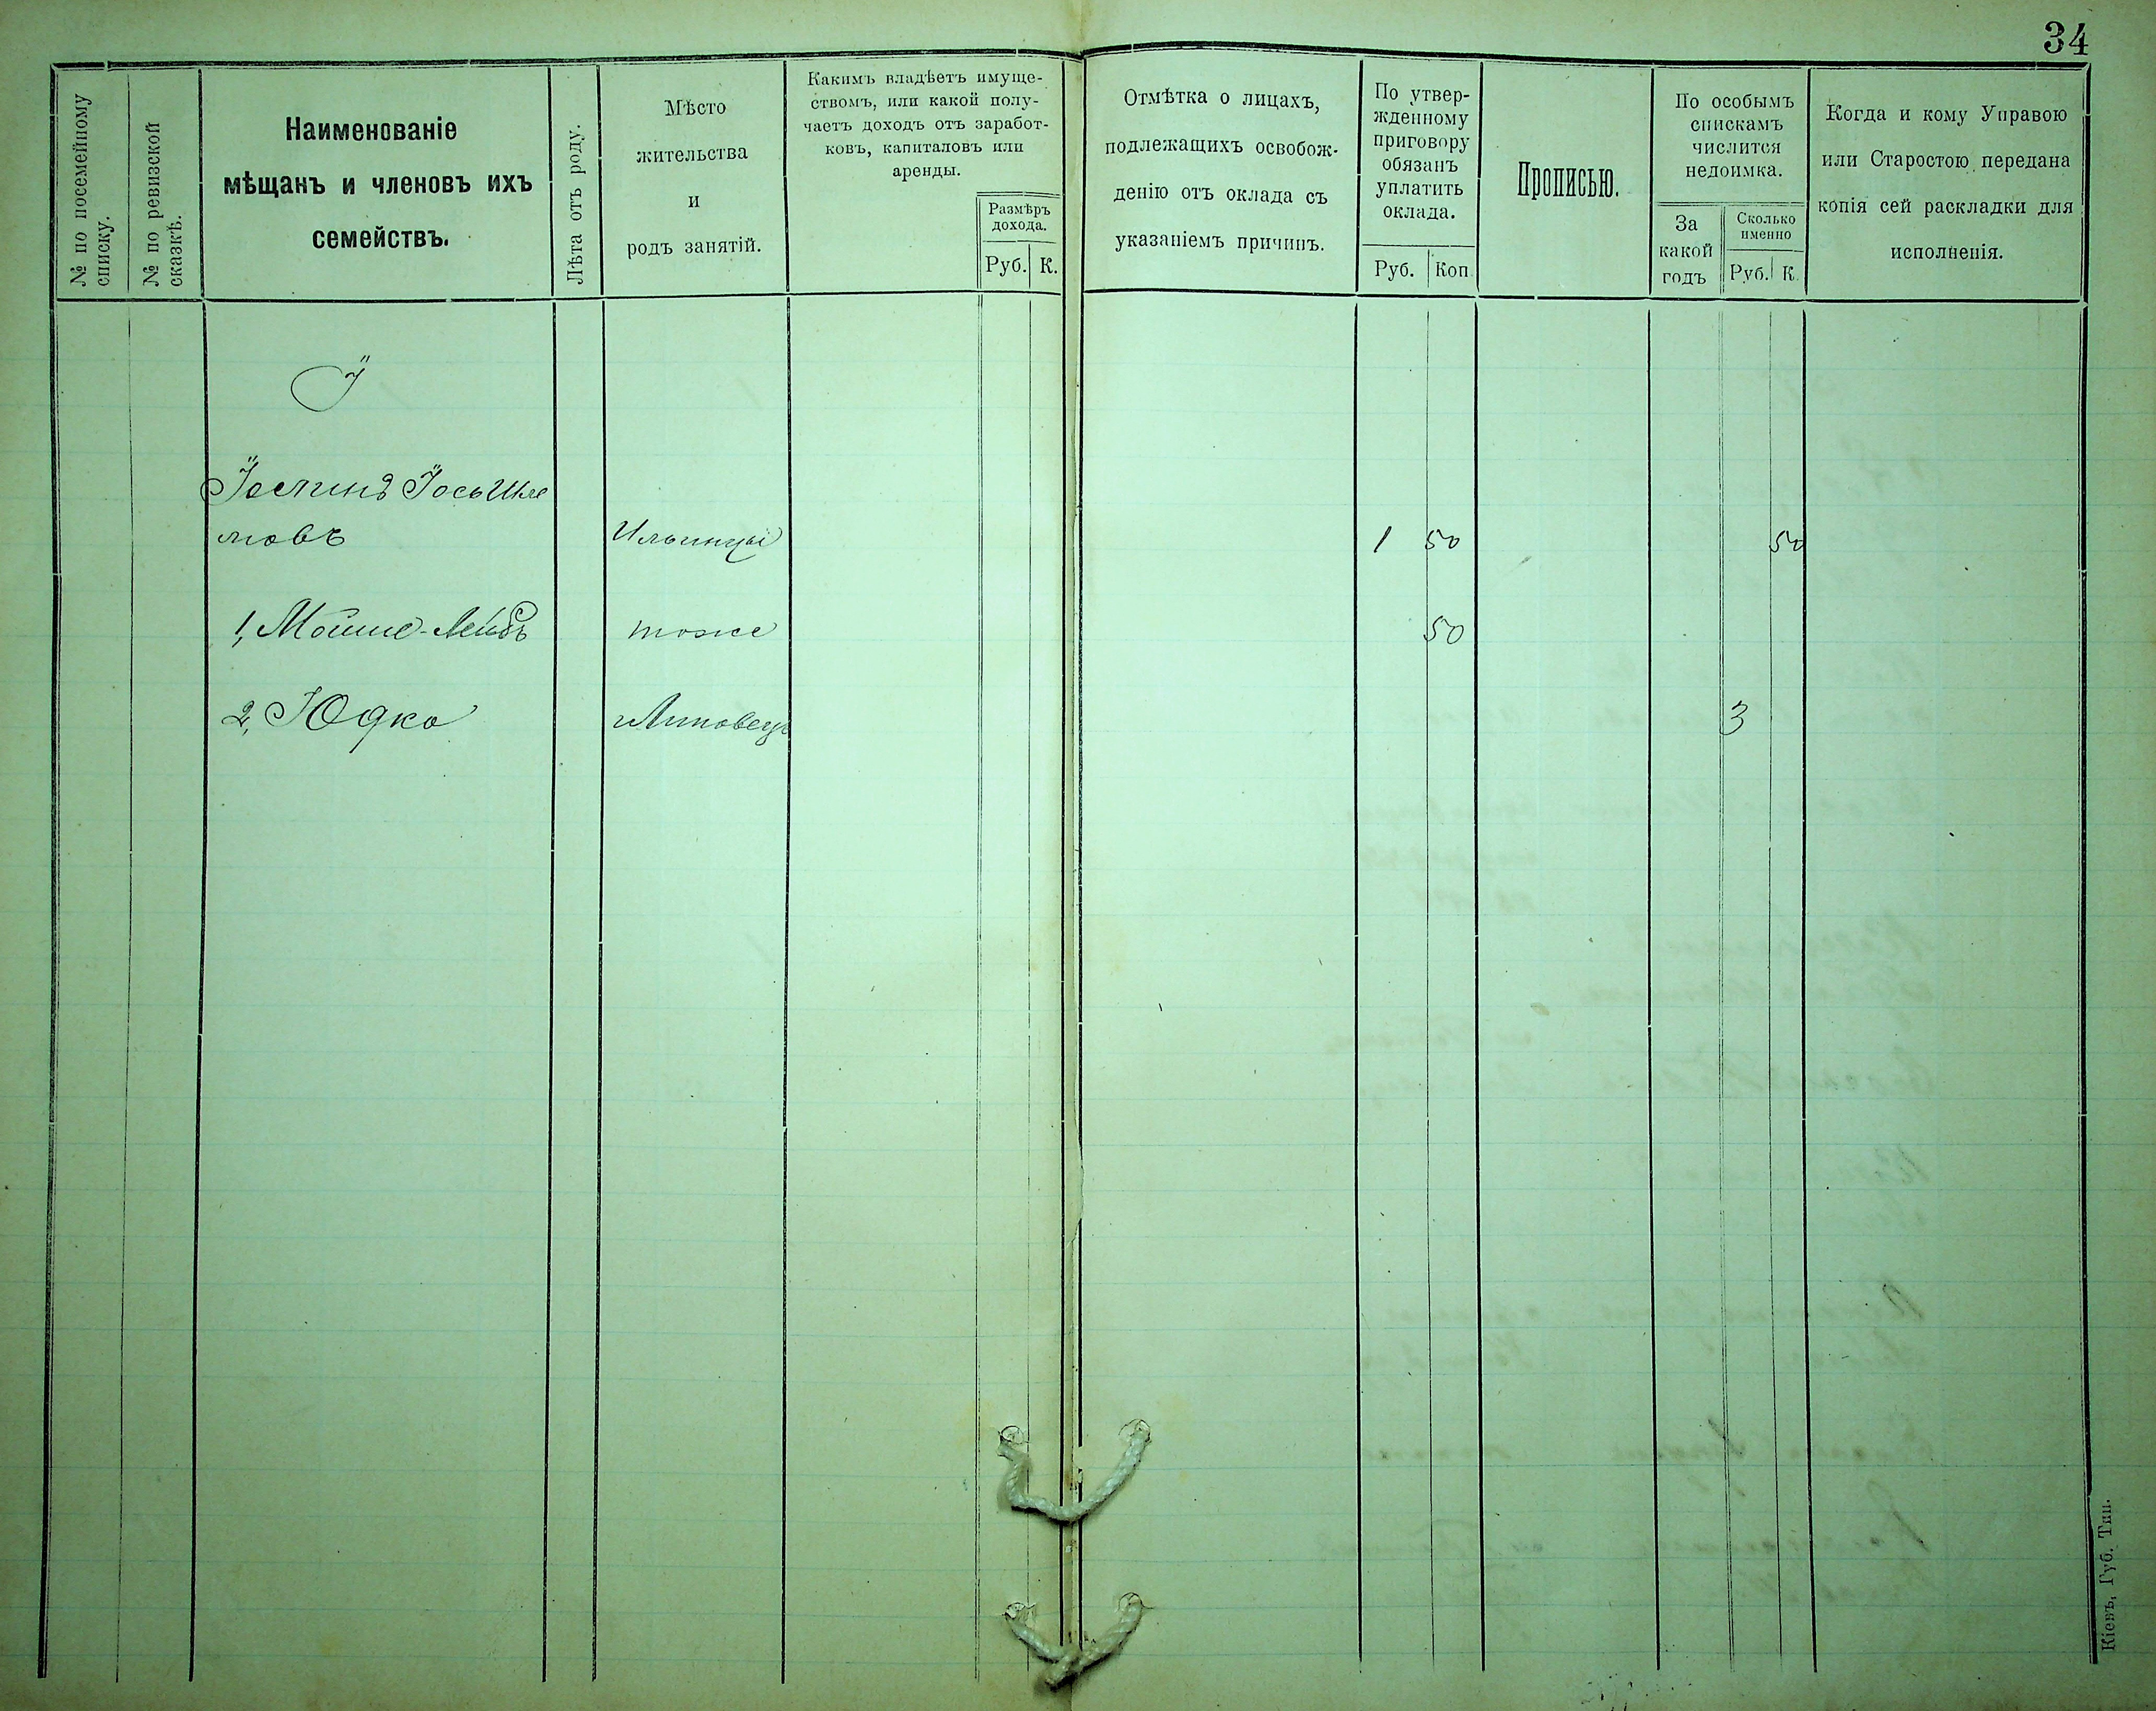 34
№ по посемейному
списку.
№ по ревизской
сказкѣ.
Наименованіе
мѣщанъ и членовъ ихъ
семействъ.
Лѣта отъ роду.
Мѣсто
жительства
и
родъ занятій.
Какимъ владѣетъ имуще-
ствомъ, или какой полу-
чаетъ доходъ отъ заработ-
ковъ, капиталовъ или
аренды.
Размѣръ
дохода.
Руб. К.
Отмѣтка о лицахъ,
подлежащихъ освобож-
денію отъ оклада съ
указаніемъ причинъ.
По утвер-
жденному
приговору
обязанъ
уплатить
оклада.
Руб. Коп
Прописью.
По особымъ
спискамъ
числится
недоимка.
За
какой
годъ
Сколько
именно
Руб. К.
Когда и кому Управою
или Старостою передана
копія сей раскладки для
исполненія.
Ї
Їось Шле
мовъ Ильинцы 1 50 50
1, Мошко-Лейбъ тоже 50
2, Юдко Липовецъ 3
Кіевъ, Губ. Тип.